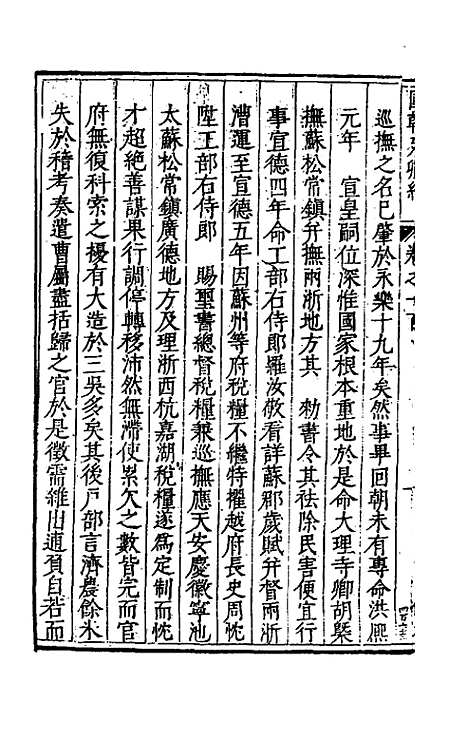 國朝列卿紀　卷之一百
巡撫之名已肇於永樂十九年矣然事畢回朝未有專命洪熙
元年　宣皇嗣位深惟國家根本重地於是命大理寺卿胡槩
撫蘇松常鎮并撫兩浙地方其　勅書令其祛除民害便宜行
事宣德四年命工部右侍郎羅汝敬看詳蘇郡歲賦并督兩浙
漕運至宣德五年因蘇州等府稅糧不繼特擢越府長史周忱
陞工部右侍郎　賜璽書總督稅糧兼巡撫應天安慶徽寧池
太蘇松常鎮廣德地方及理浙西杭嘉湖稅糧遂爲定制而忱
才超絶善謀果行調停轉移沛然無滯使累欠之數皆完而官
府無復科索之擾有大造於三吳多矣其後戶部言濟農餘米
失於稽考奏遣曹屬盡括歸之官於是徵需雜出逋負自若而